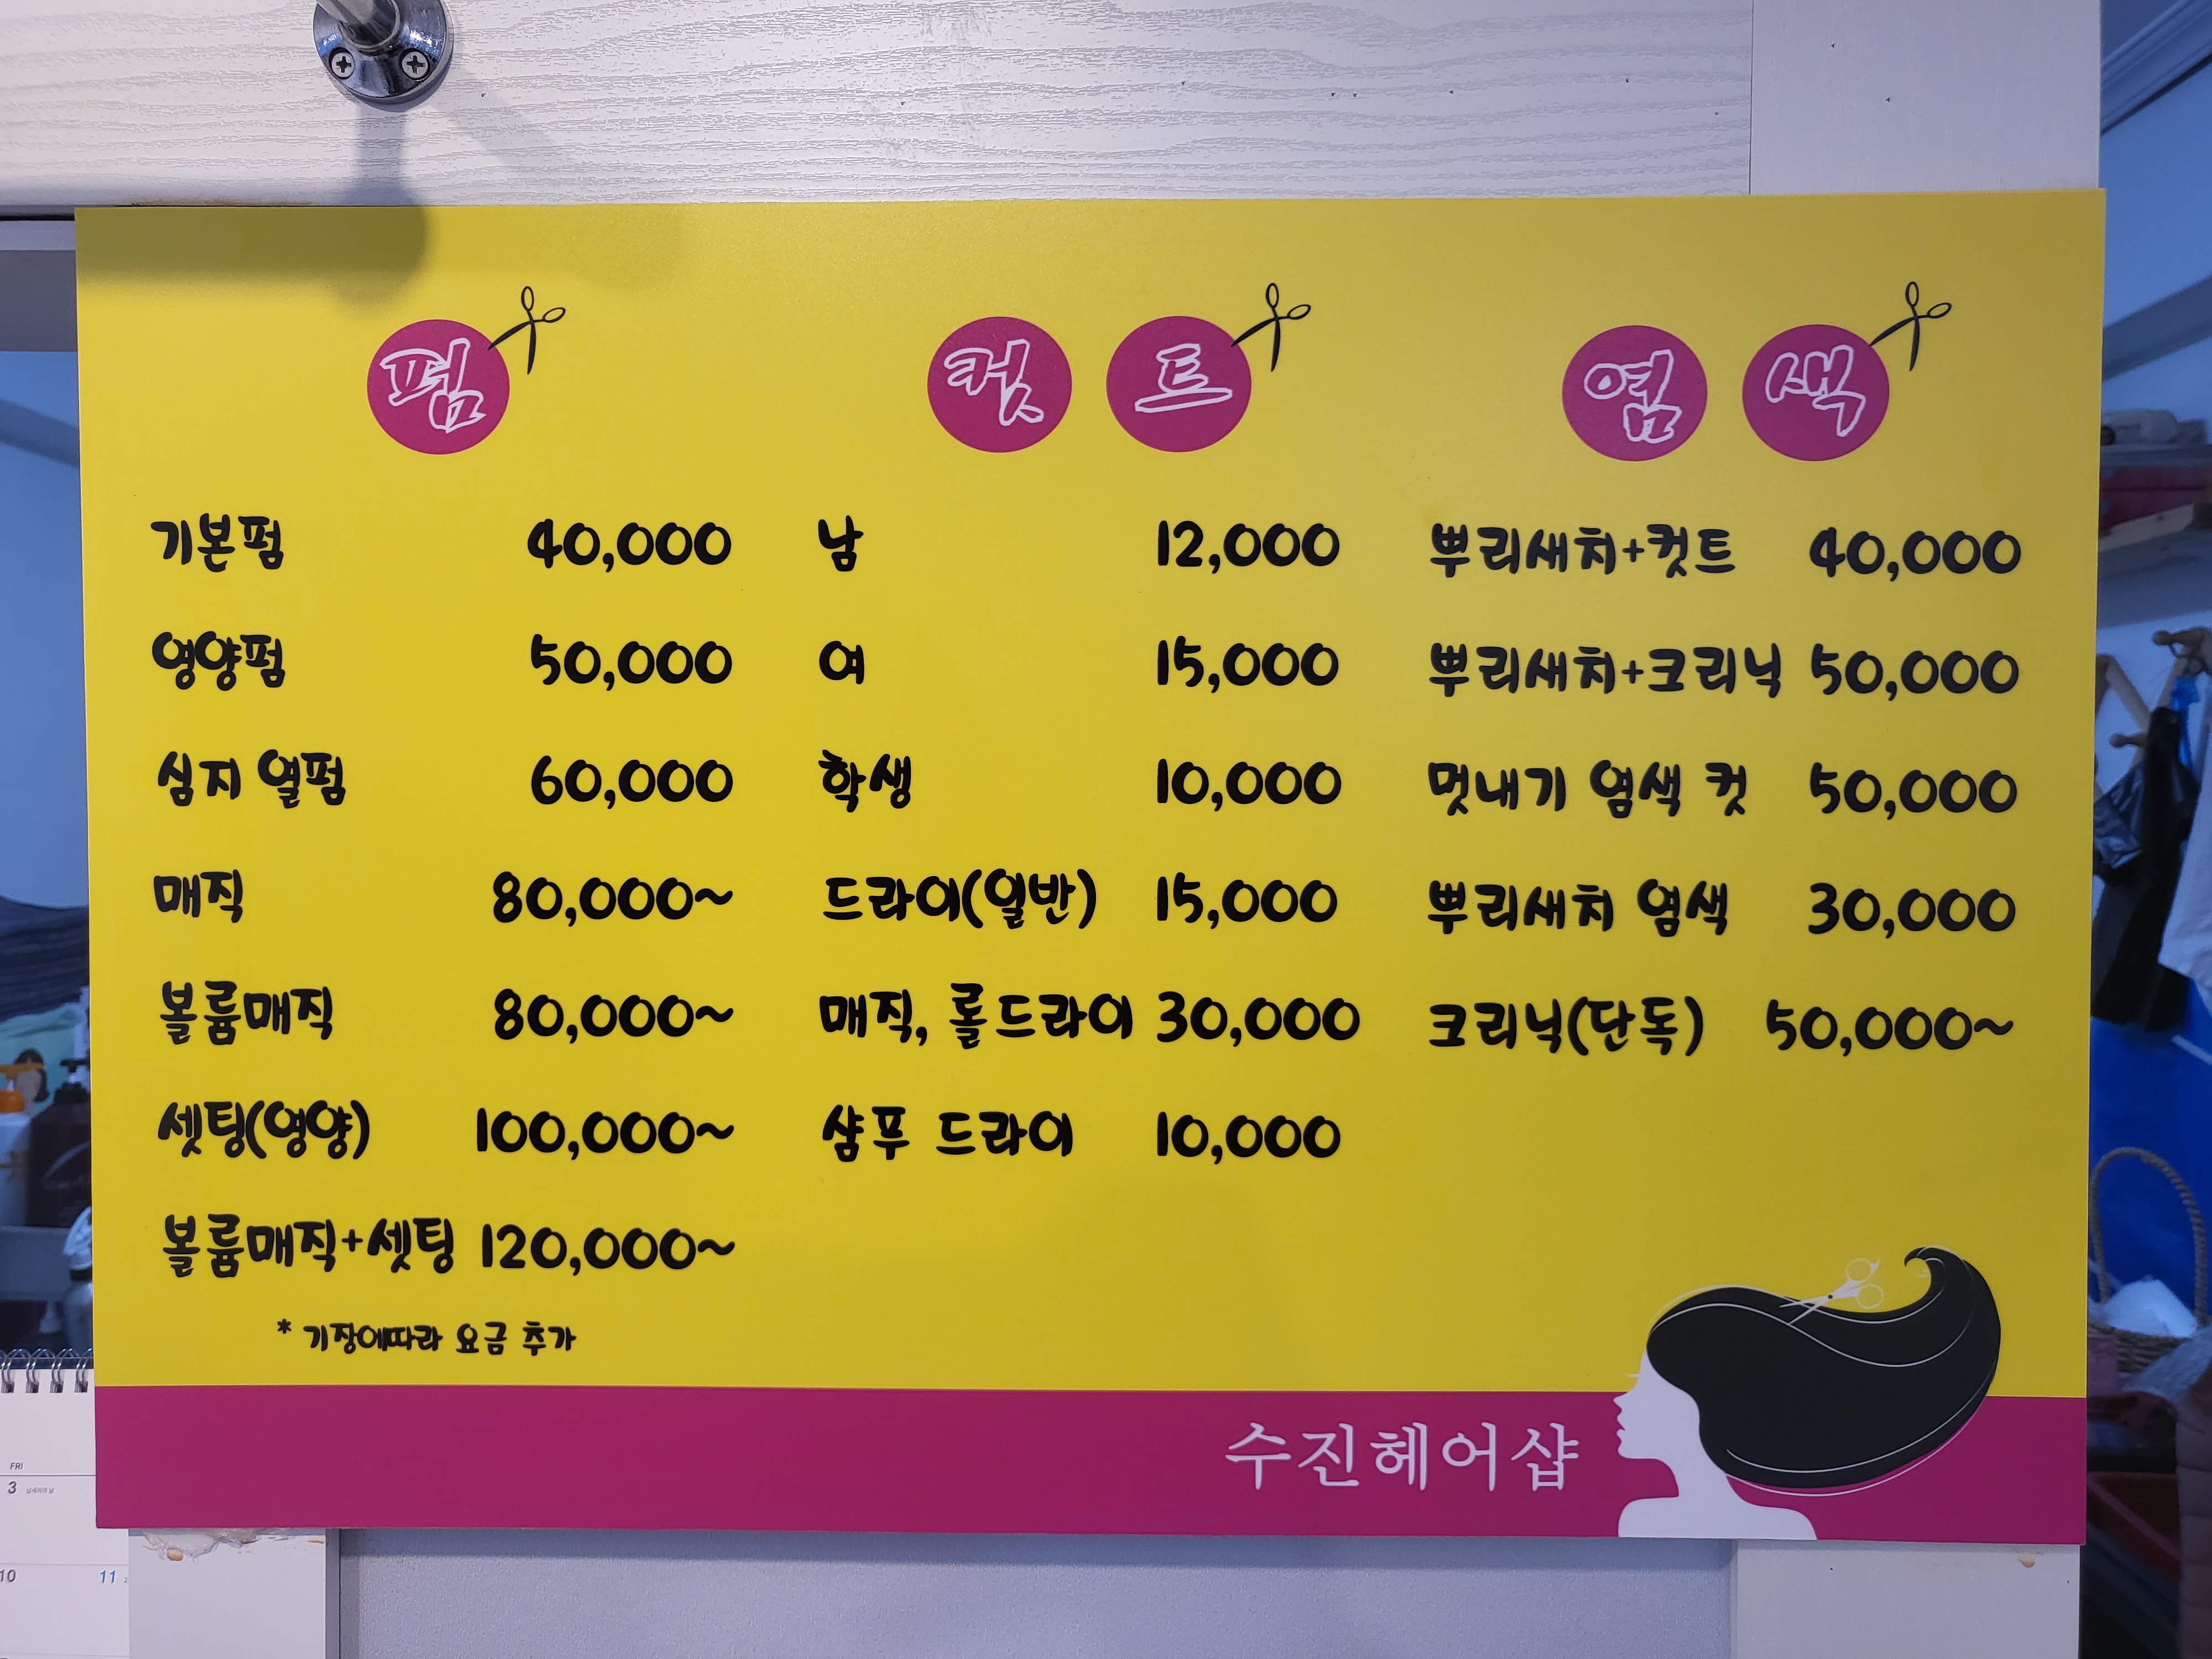 펌
기본펌 40,000
영양펌 50,000
심지 열펌 60,000
매직 80,000~
볼륨매직 80,000~
셋팅(영양) 100,000~
볼륨매직+셋팅 120,000~
* 기장에따라 요금 추가
컷트
남 12,000
여 15,000
학생 10,000
드라이(일반) 15,000
매직, 롤드라이 30,000
샴푸 드라이 10,000
염색
뿌리새치+컷트 40,000
뿌리새치+크리닉 50,000
멋내기 염색 컷 50,000
뿌리새치 염색 30,000
크리닉(단독) 50,000~
수진헤어샵
FRI
3
10 11